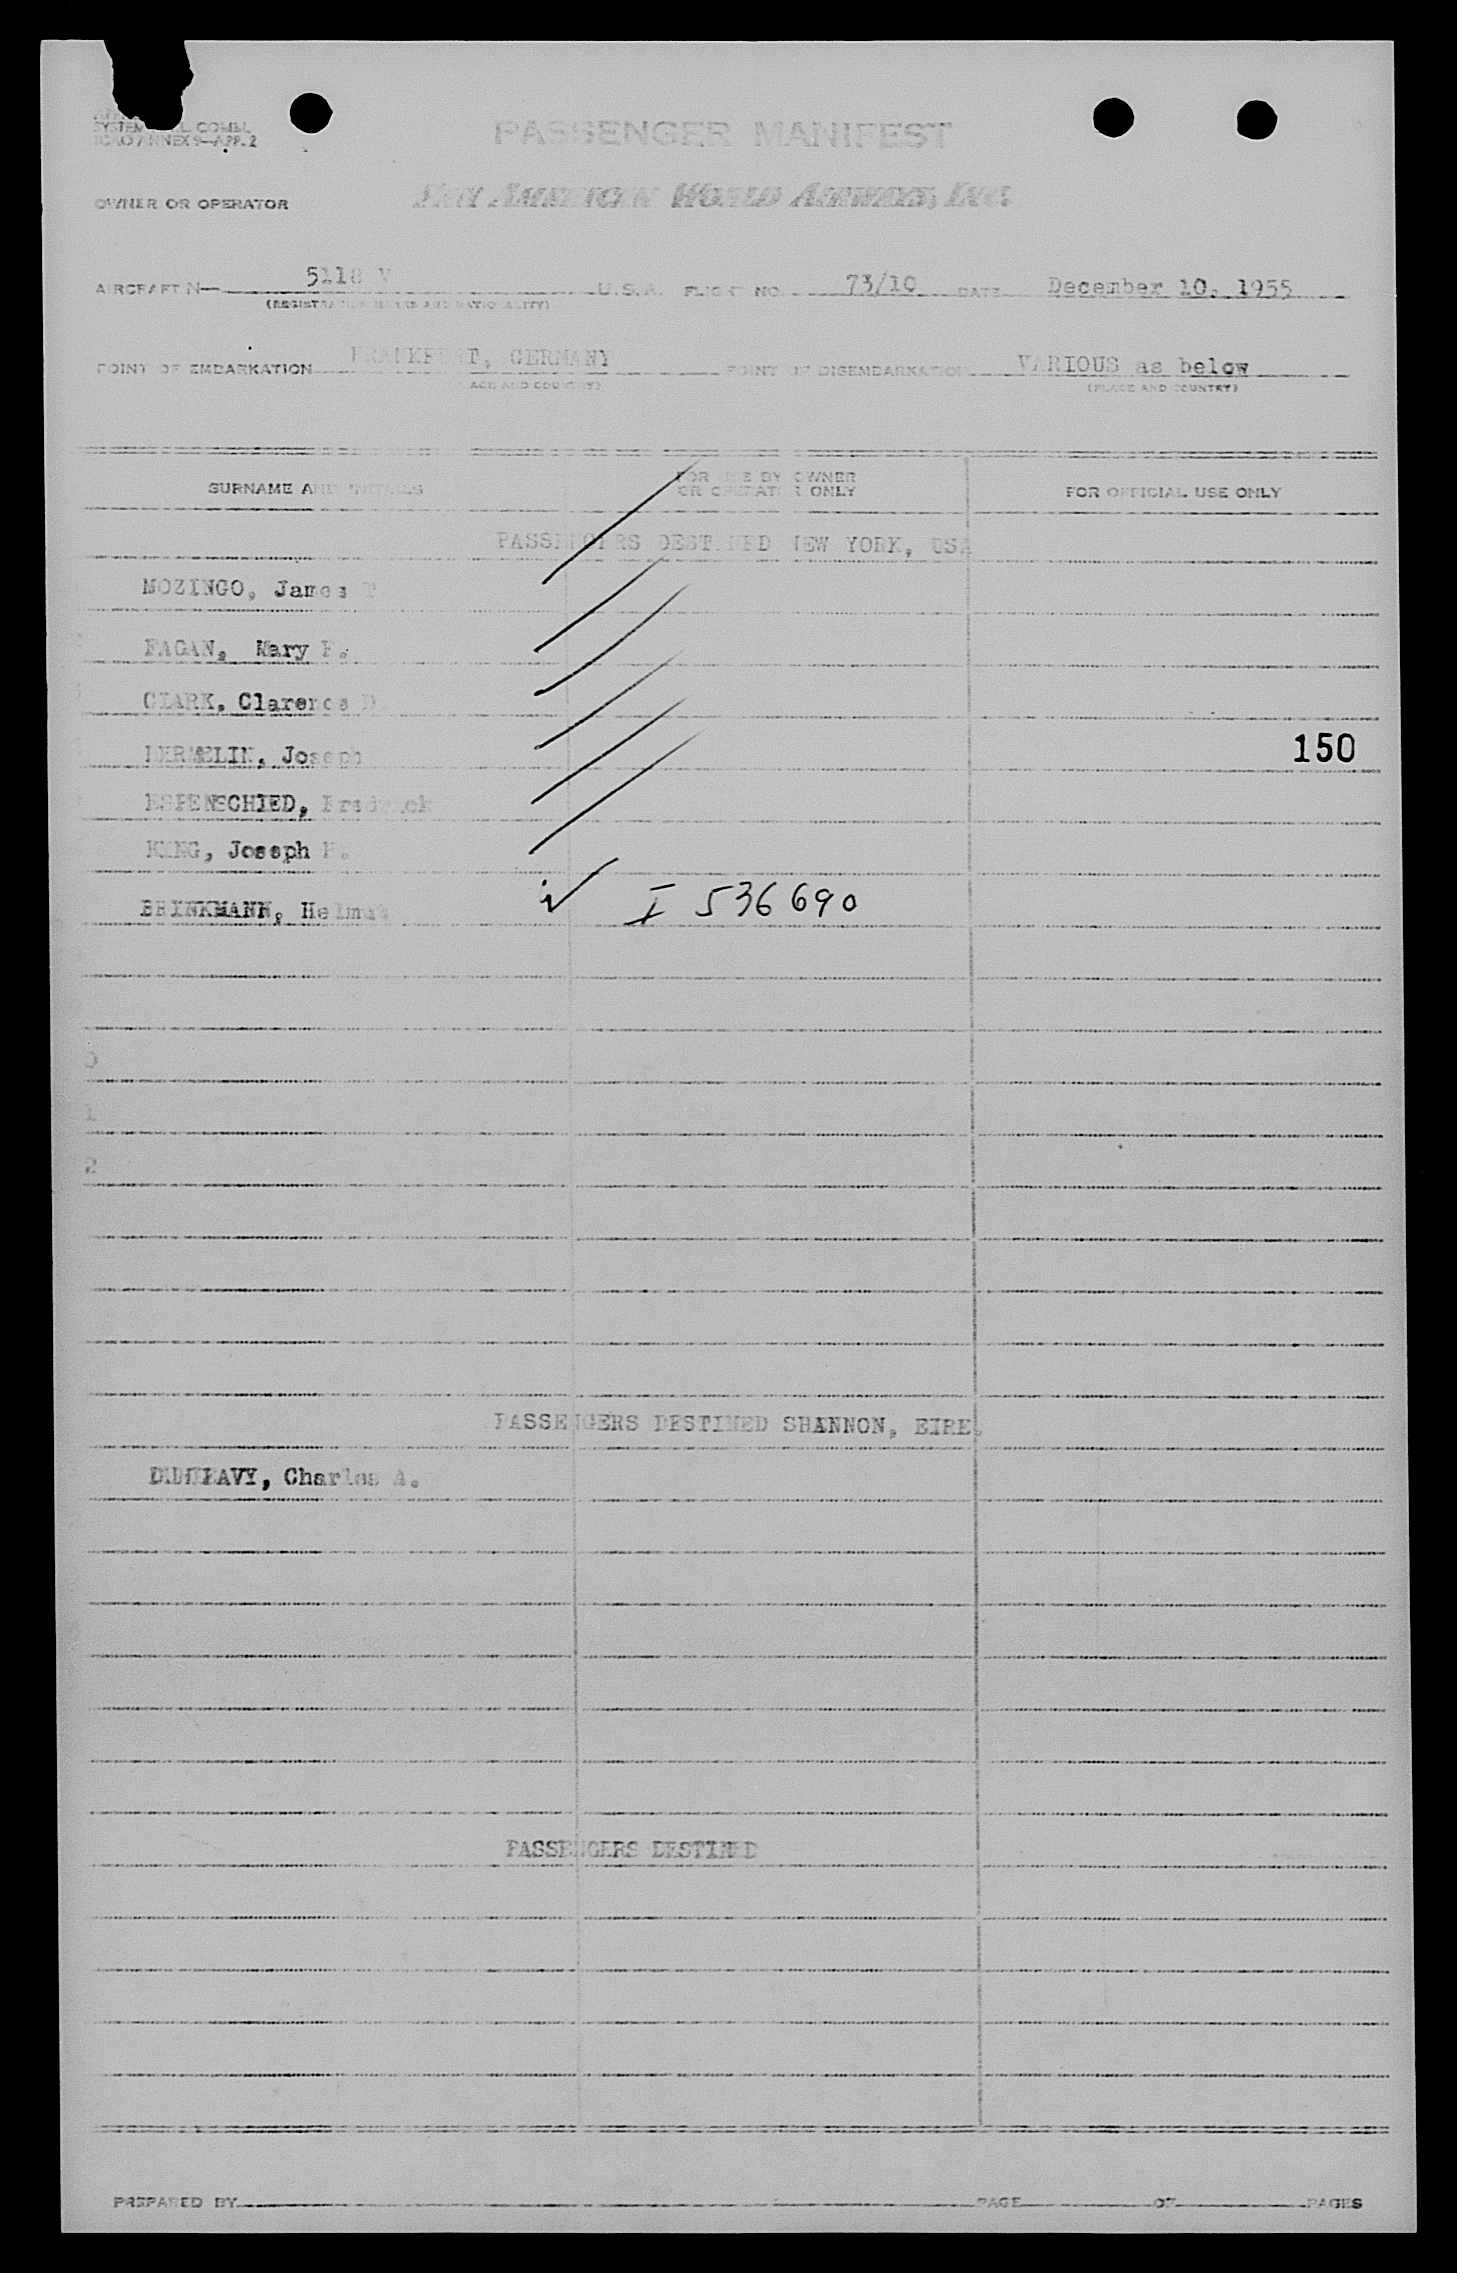 SYSTEM COMBI.
ICAO ANNEX 9—APP. 2
PASSENGER MANIFEST
OWNER OR OPERATOR PAN AMERICAN WORLD AIRWAYS, INC.
AIRCRAFT N— 5118 V U.S.A. FLIGHT NO. 73/10 DATE December 10, 1955
(REGISTRATION MARKS AND NATIONALITY)
POINT OF EMBARKATION FRANKFURT, GERMANY POINT OF DISEMBARKATION VARIOUS as below
(PLACE AND COUNTRY) (PLACE AND COUNTRY)
SURNAME AND INITIALS FOR USE BY OWNER OR OPERATOR ONLY FOR OFFICIAL USE ONLY
PASSENGERS DESTINED NEW YORK, USA
MOZINGO, James T
FAGAN, Mary F.
CLARK, Clarence D.
HERMELIN, Joseph
150
ESPENSCHIED, Fredrick
KING, Joseph
BRINKMANN, Helmut I 536690
0
1
2
PASSENGERS DESTINED SHANNON, EIRE.
Charles A.
PASSENGERS DESTINED
PREPARED BY PAGE OF PAGES